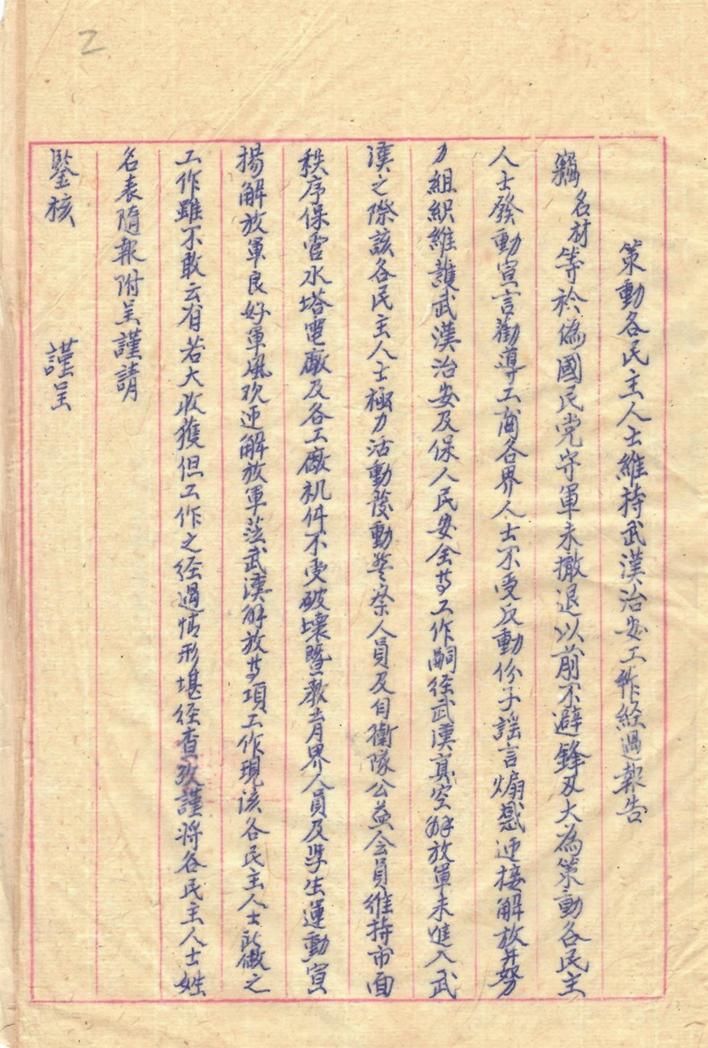 2
策動各民主人士維持武漢治安工作經過報告
竊名材等於偽國民党守軍未撤退以前不避鋒刃大為策動各民主
人士發動宣言勸導工商各界人士不受反動份子謠言煽惑迎接解放并努
力組织維護武漢治安及保人民安全等工作嗣径武漢真空解放軍未進入武
漢之際該各民主人士極力活動發動警察人員及自衛隊公益会員維持市面
秩序保管水塔電廠及各工廠机件不受破壞暨教育界人員及学生運動宣
揚解放軍良好軍風欢迎解放軍蒞武漢解放等項工作現該各民主人士所做之
工作雖不敢云有若大收獲但工作之径過情形堪径查攷謹將各民主人士姓
名表隨報附呈謹請
鑒核　　謹呈